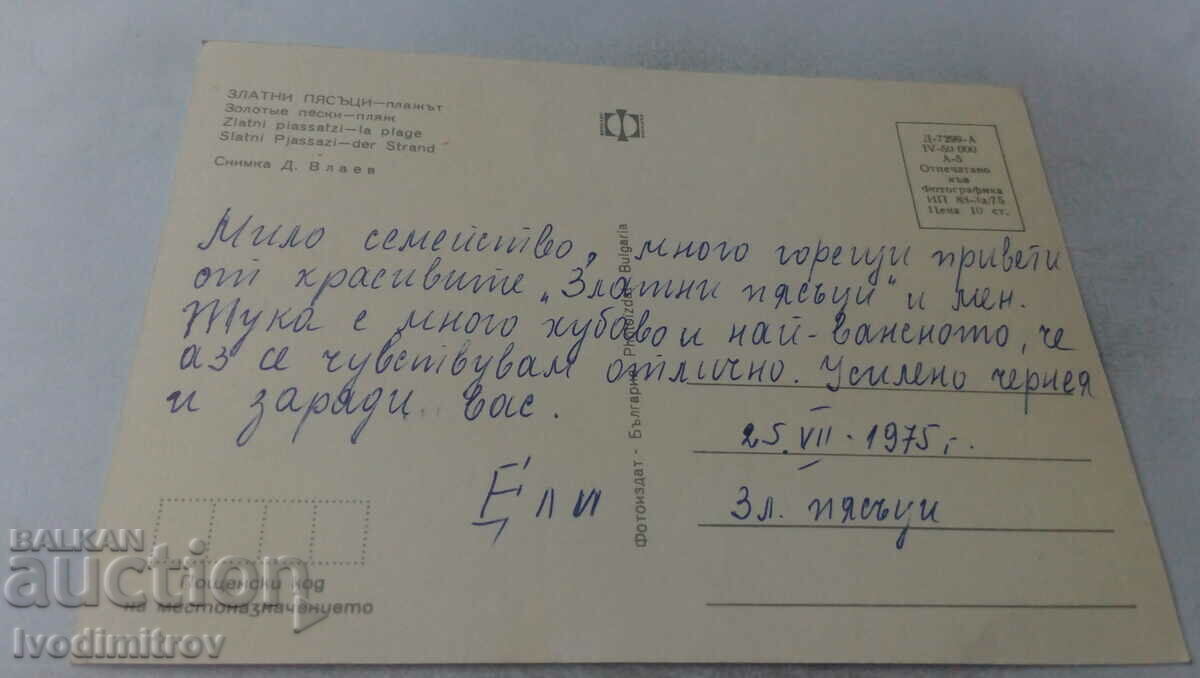 ЗЛАТНИ ПЯСЪЦИ—плажът
Золотые пески—пляж
Zlatni piassatzi—la plage
Slatni Pjassazi—der Strand
Снимка Д. Влаев
Д-7299-А
IV-50 000
А-5
Отпечатано
във
Фотографика
ИП
Цена 10 ст.
Мило семейство, много горещи привети
от красивите "Златни пясъци" и мен.
Тука е много хубаво и най-важното, че
аз се чувствувам отлично. Усилено чернея
и заради вас.
25.VII.1975,-.
Ели
Зл. пясъци
Фотоиздат - България Photoizdat Bulgaria
Пощенски код
на местоназначението
BALKAN
auction
Ivodimitrov